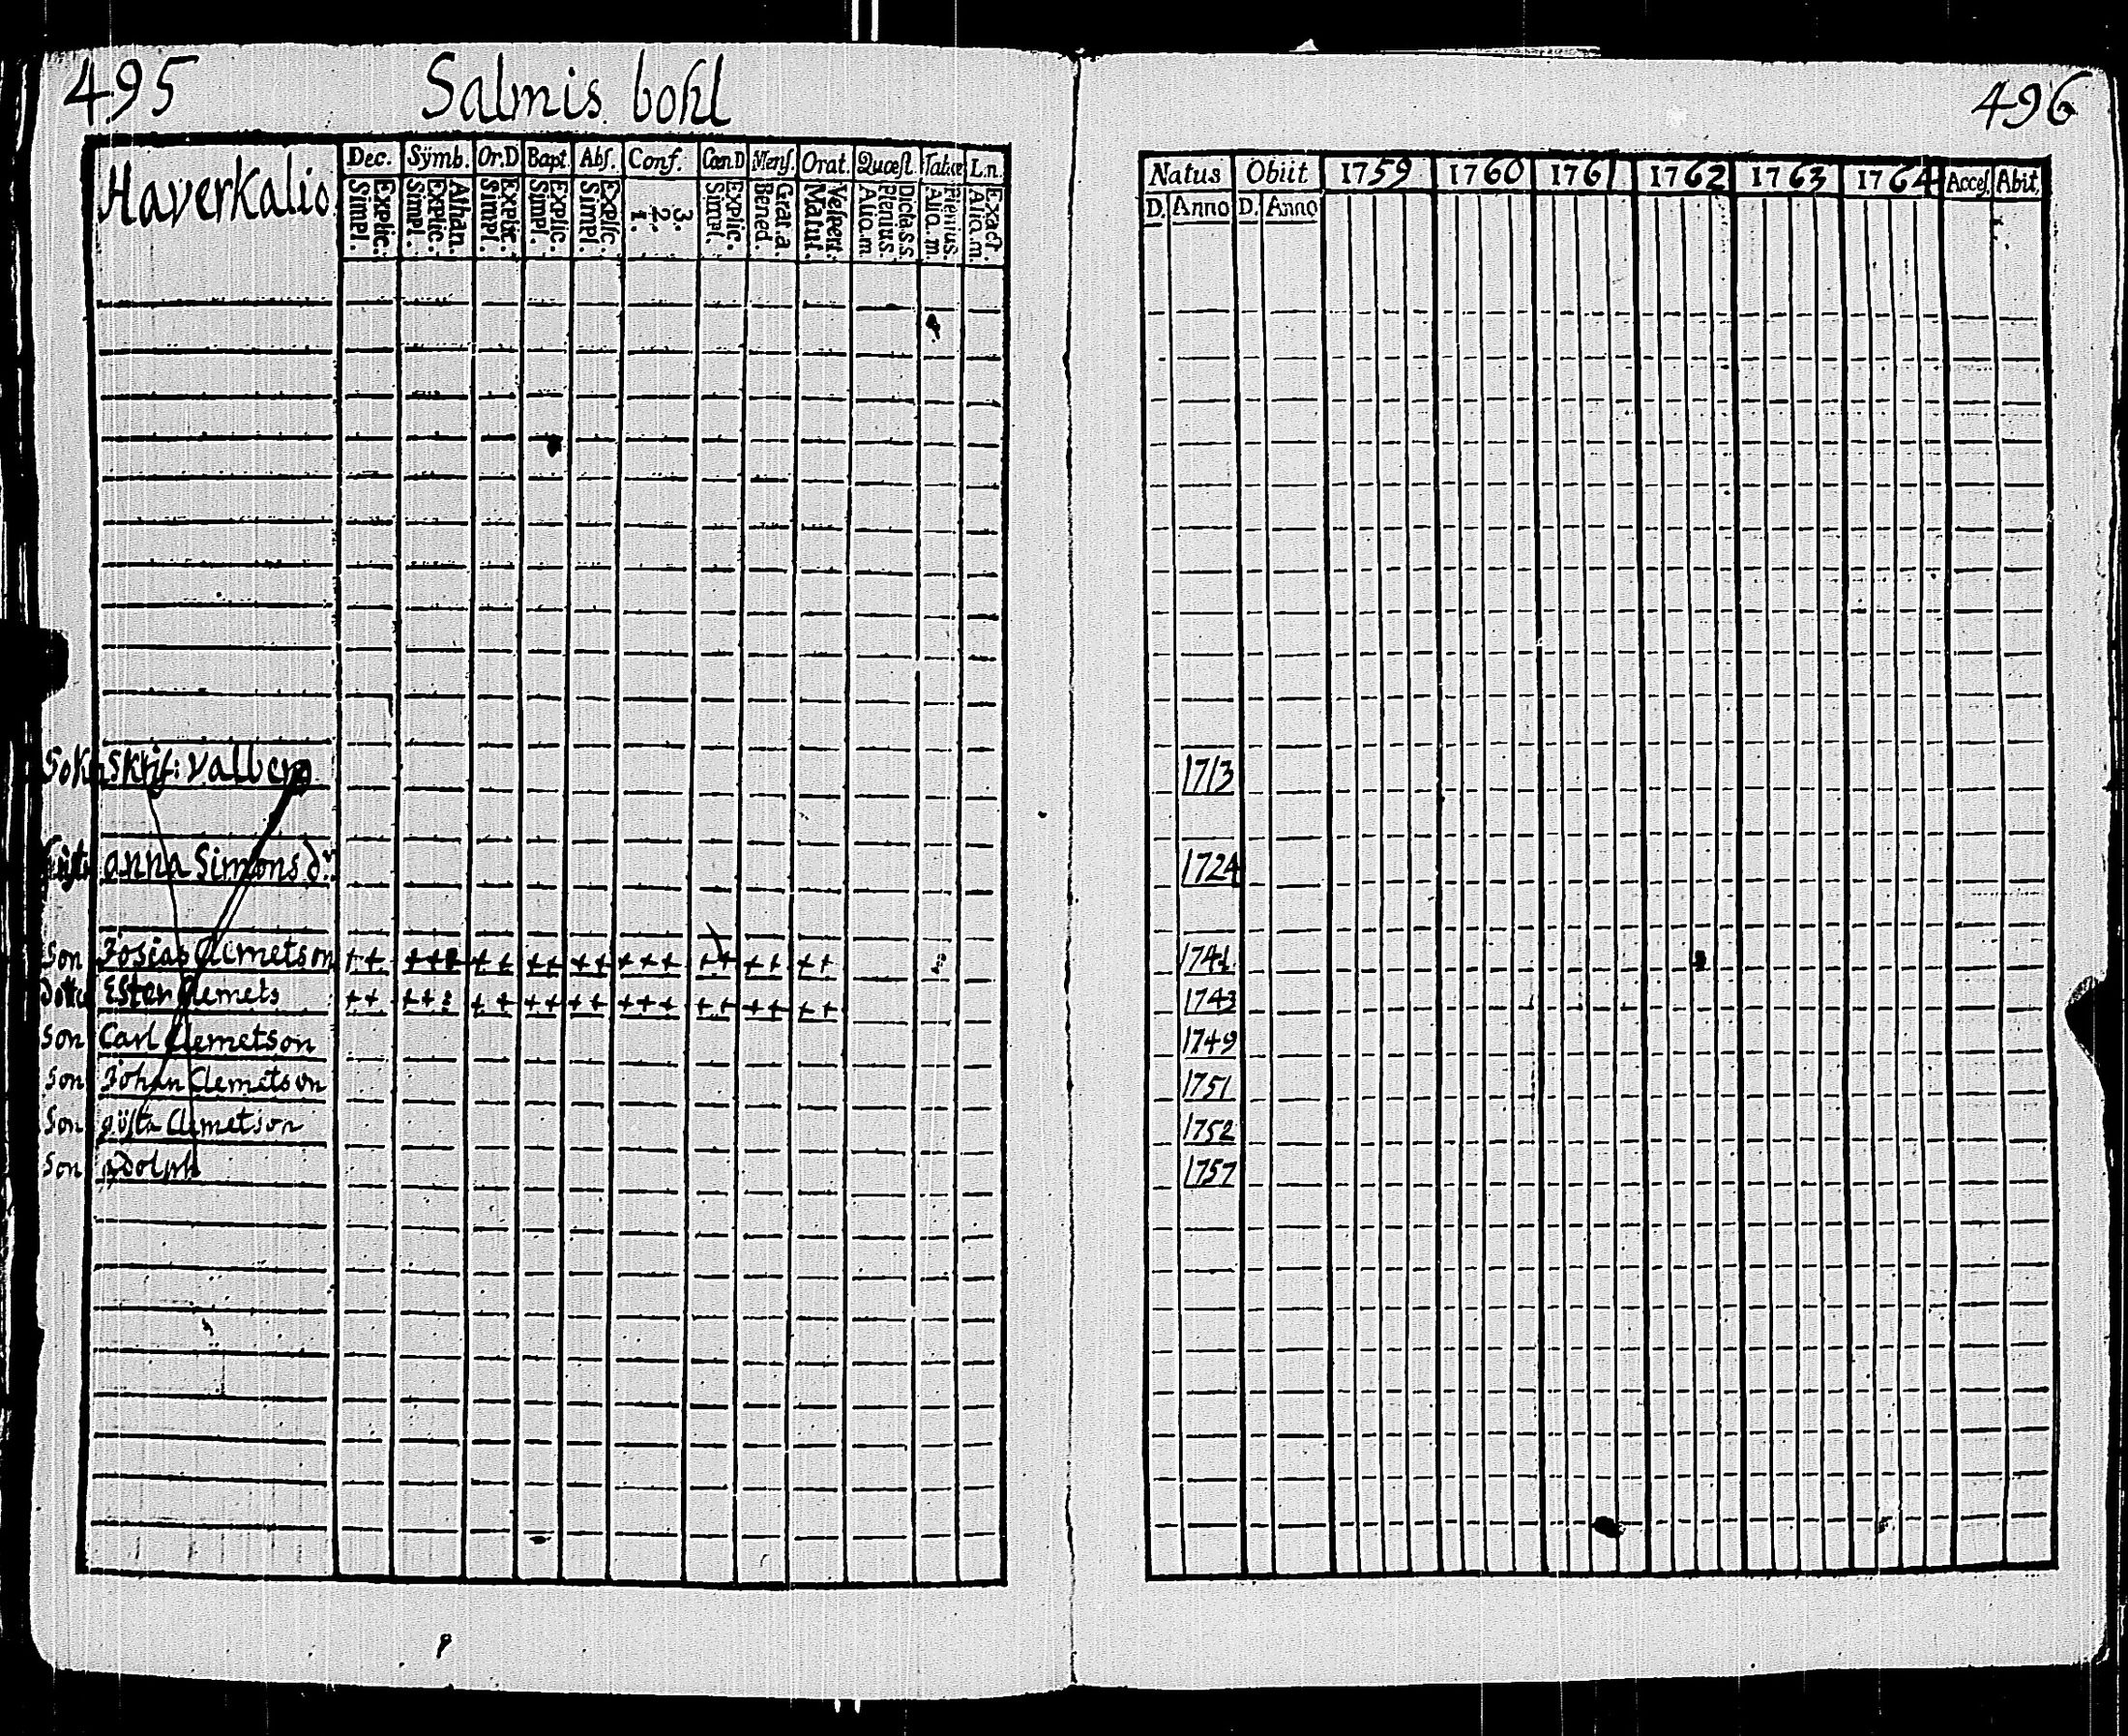 495 Salmis bohl 496
Haverkalio
Dec. Sÿmb. Or.D Bapt. Abs. Conf. Cœn.D Mens. Orat. Quæst. Tabææ L.n.
Explic. Simpl. Athan. Explic. Simpl. Explic. Simpl. Explic. Simpl. Explic. Simpl. 3. 2. 1. Explic. Simpl. Grat.a. Bened. Vespert. Matut. Dicta.s.s. Plenius. Aliq.m Plenius. Aliq.m. Exact. Aliq.m.
Natus Obiit 1759 1760 1761 1762 1763 1764 Acces. Abit.
D. Anno D. Anno
Sokn Skrif: Valberg 1713
anna Simons dr 1724
Son Josias Clemetson ++ +++ ++ ++ ++ +++ ++ ++ ++ 1741
Ester Clemets ++ ++ ++ ++ ++ +++ ++ ++ ++ 1743
Son Carl Clemetson 1749
Son Johan Clemetson 1751
Son gösta Clemetson 1752
Son adolph 1757